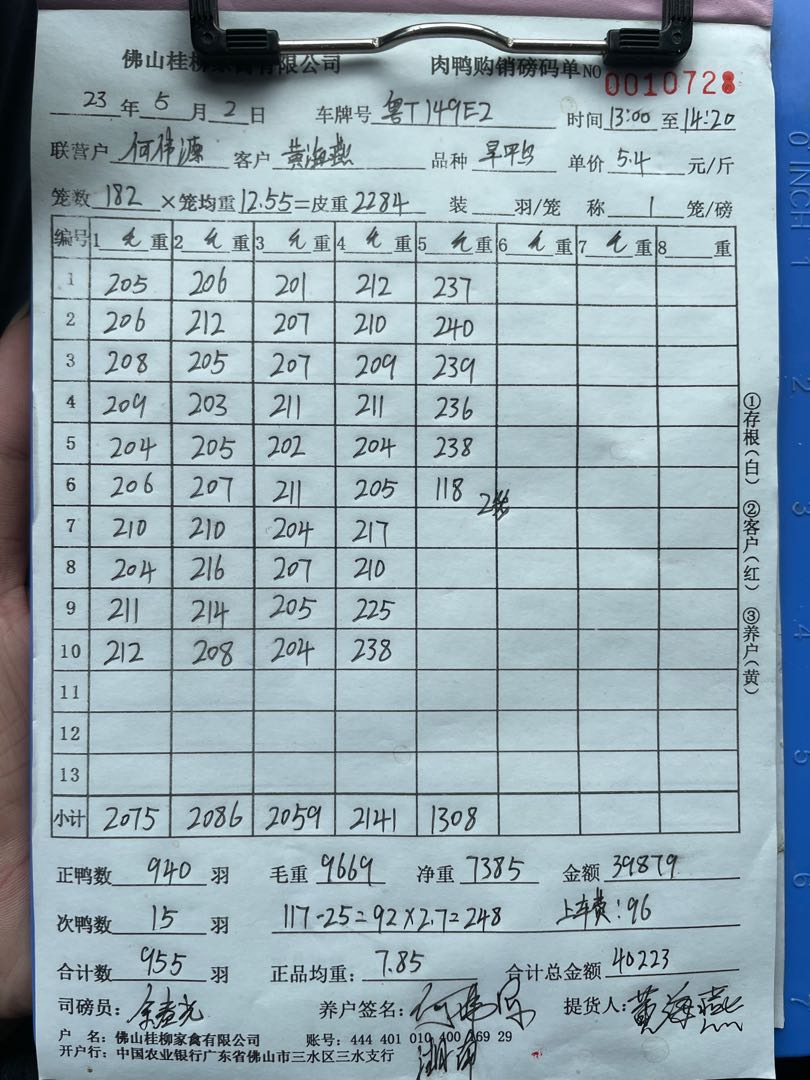 佛山桂柳家禽有限公司 肉鸭购销磅码单 NO 0010728
23 年 5 月 2 日 车牌号 粤T149E2 时间 13:00 至 14:20
联营户 何伟源 客户 黄海燕 品种 旱鸭 单价 5.4 元/斤
笼数 182 ×笼均重 12.55 =皮重 2284 装 羽/笼 称 1 笼/磅
编号 1 毛 重 2 毛 重 3 毛 重 4 毛 重 5 毛 重 6 毛 重 7 毛 重 8 重
1 205 206 201 212 237
2 206 212 207 210 240
3 208 205 207 209 239
4 209 203 211 211 236
5 204 205 202 204 238
6 206 207 211 205 118 2
7 210 210 204 217
8 204 216 207 210
9 211 214 205 225
10 212 208 204 238
11
12
13
小计 2075 2086 2059 2141 1308
①存根(白) ②客户(红) ③养户(黄)
正鸭数 940 羽 毛重 9669 净重 7385 金额 39879
次鸭数 15 羽 117-25=92×2.7=248 上车费:96
合计数 955 羽 正品均重: 7.85 合计总金额 40223
司磅员: 养户签名: 提货人: 黄海燕
户 名: 佛山桂柳家禽有限公司 账号: 444 401 010 400 269 29
开户行: 中国农业银行广东省佛山市三水区三水支行
0 INCH 1 2 3 4 5 6 7